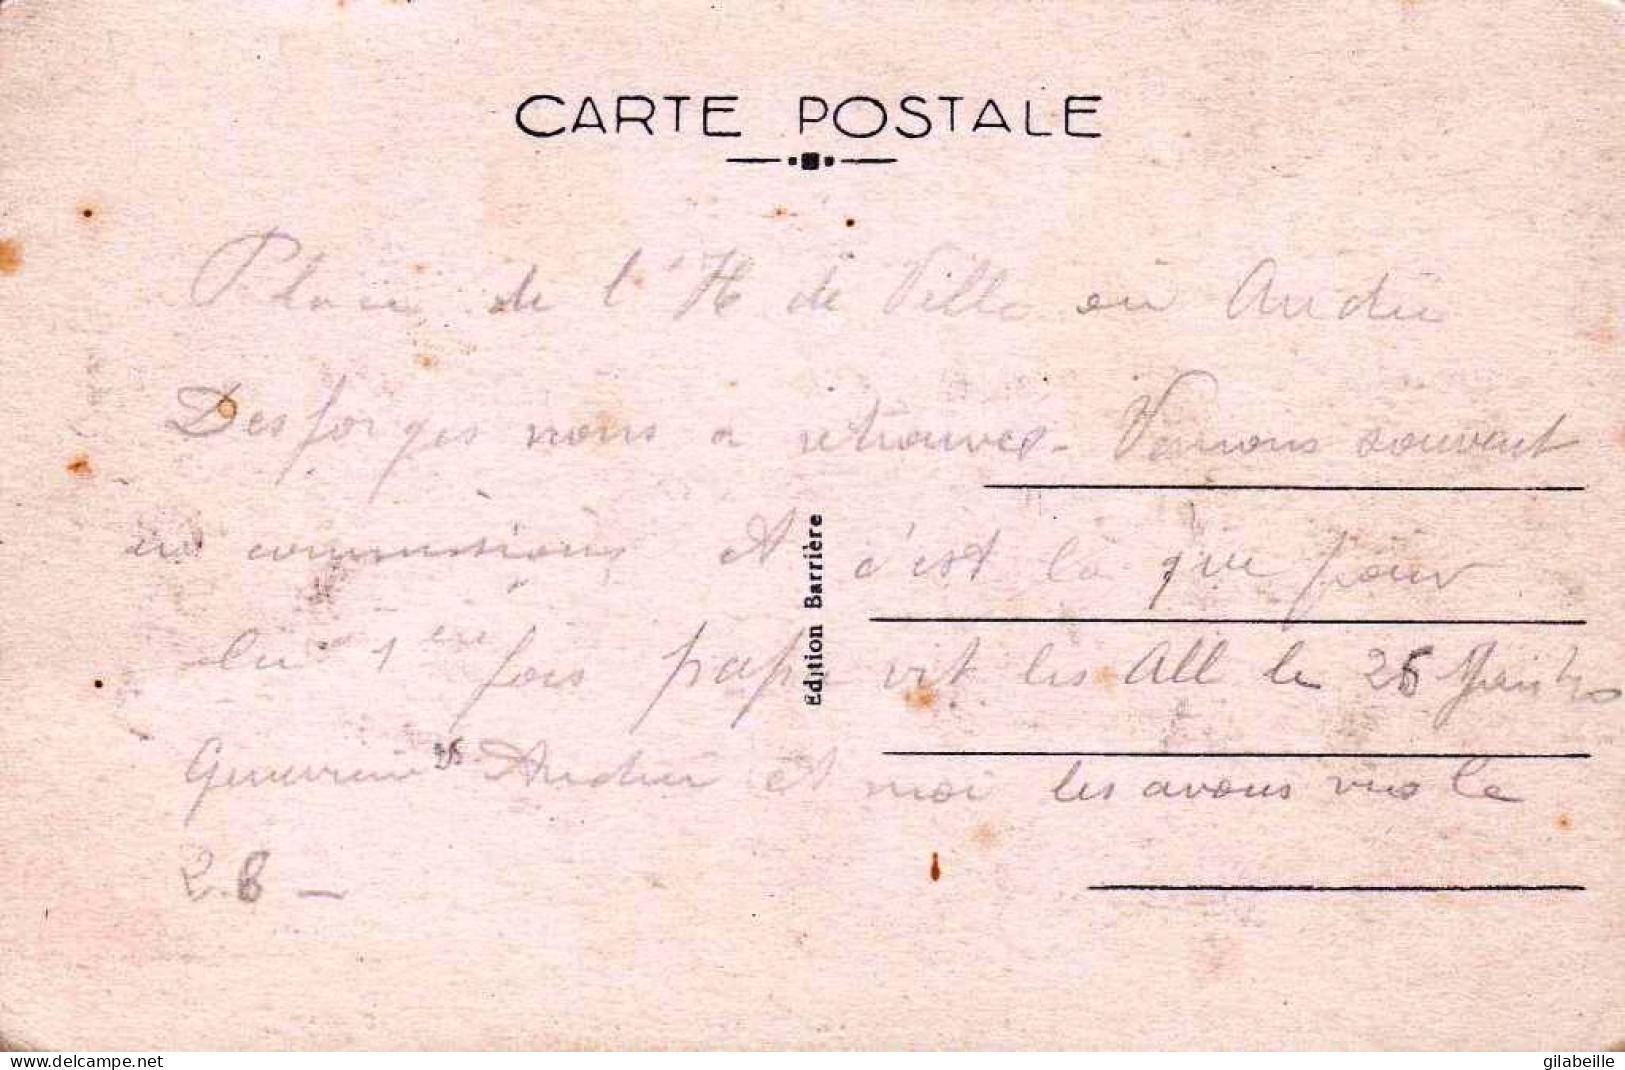 CARTE POSTALE
Place de l'H de Ville où André
Desforges nous a retrouvés - Venions souvent
en commissions et c'est là que pour
la 1ère fois papa vit les All le 26
André et moi les avons vus le
28 -
Edition Barrière
www.delcampe.net
gilabeille